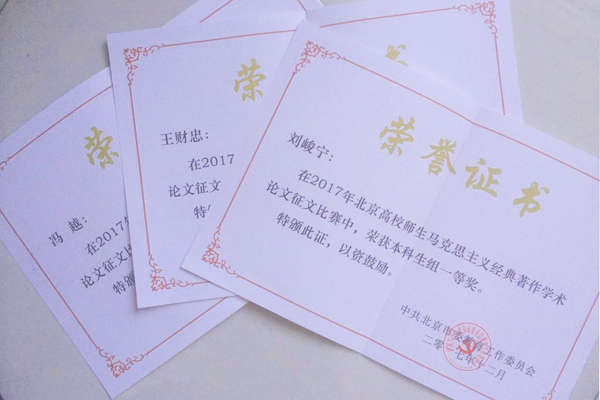 荣誉证书
刘峻宁：
在2017年北京高校师生马克思主义经典著作学术
论文征文比赛中，荣获本科生组一等奖。
特颁此证，以资鼓励。
中共北京市委教育工作委员会
二〇一七年十二月
荣
王财忠：
在2017
论文征文
特
荣
冯越：
在2017年
论文征文比
特颁此证，以